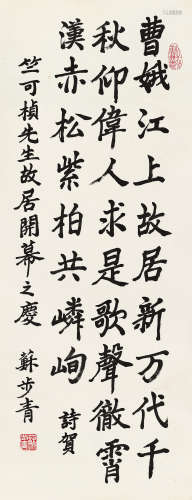 曹娥江上故居新万代千
秋仰偉人求是歌聲徹霄
漢赤松紫柏共嶙峋 詩賀
竺可楨先生故居開幕之慶 蘇步青